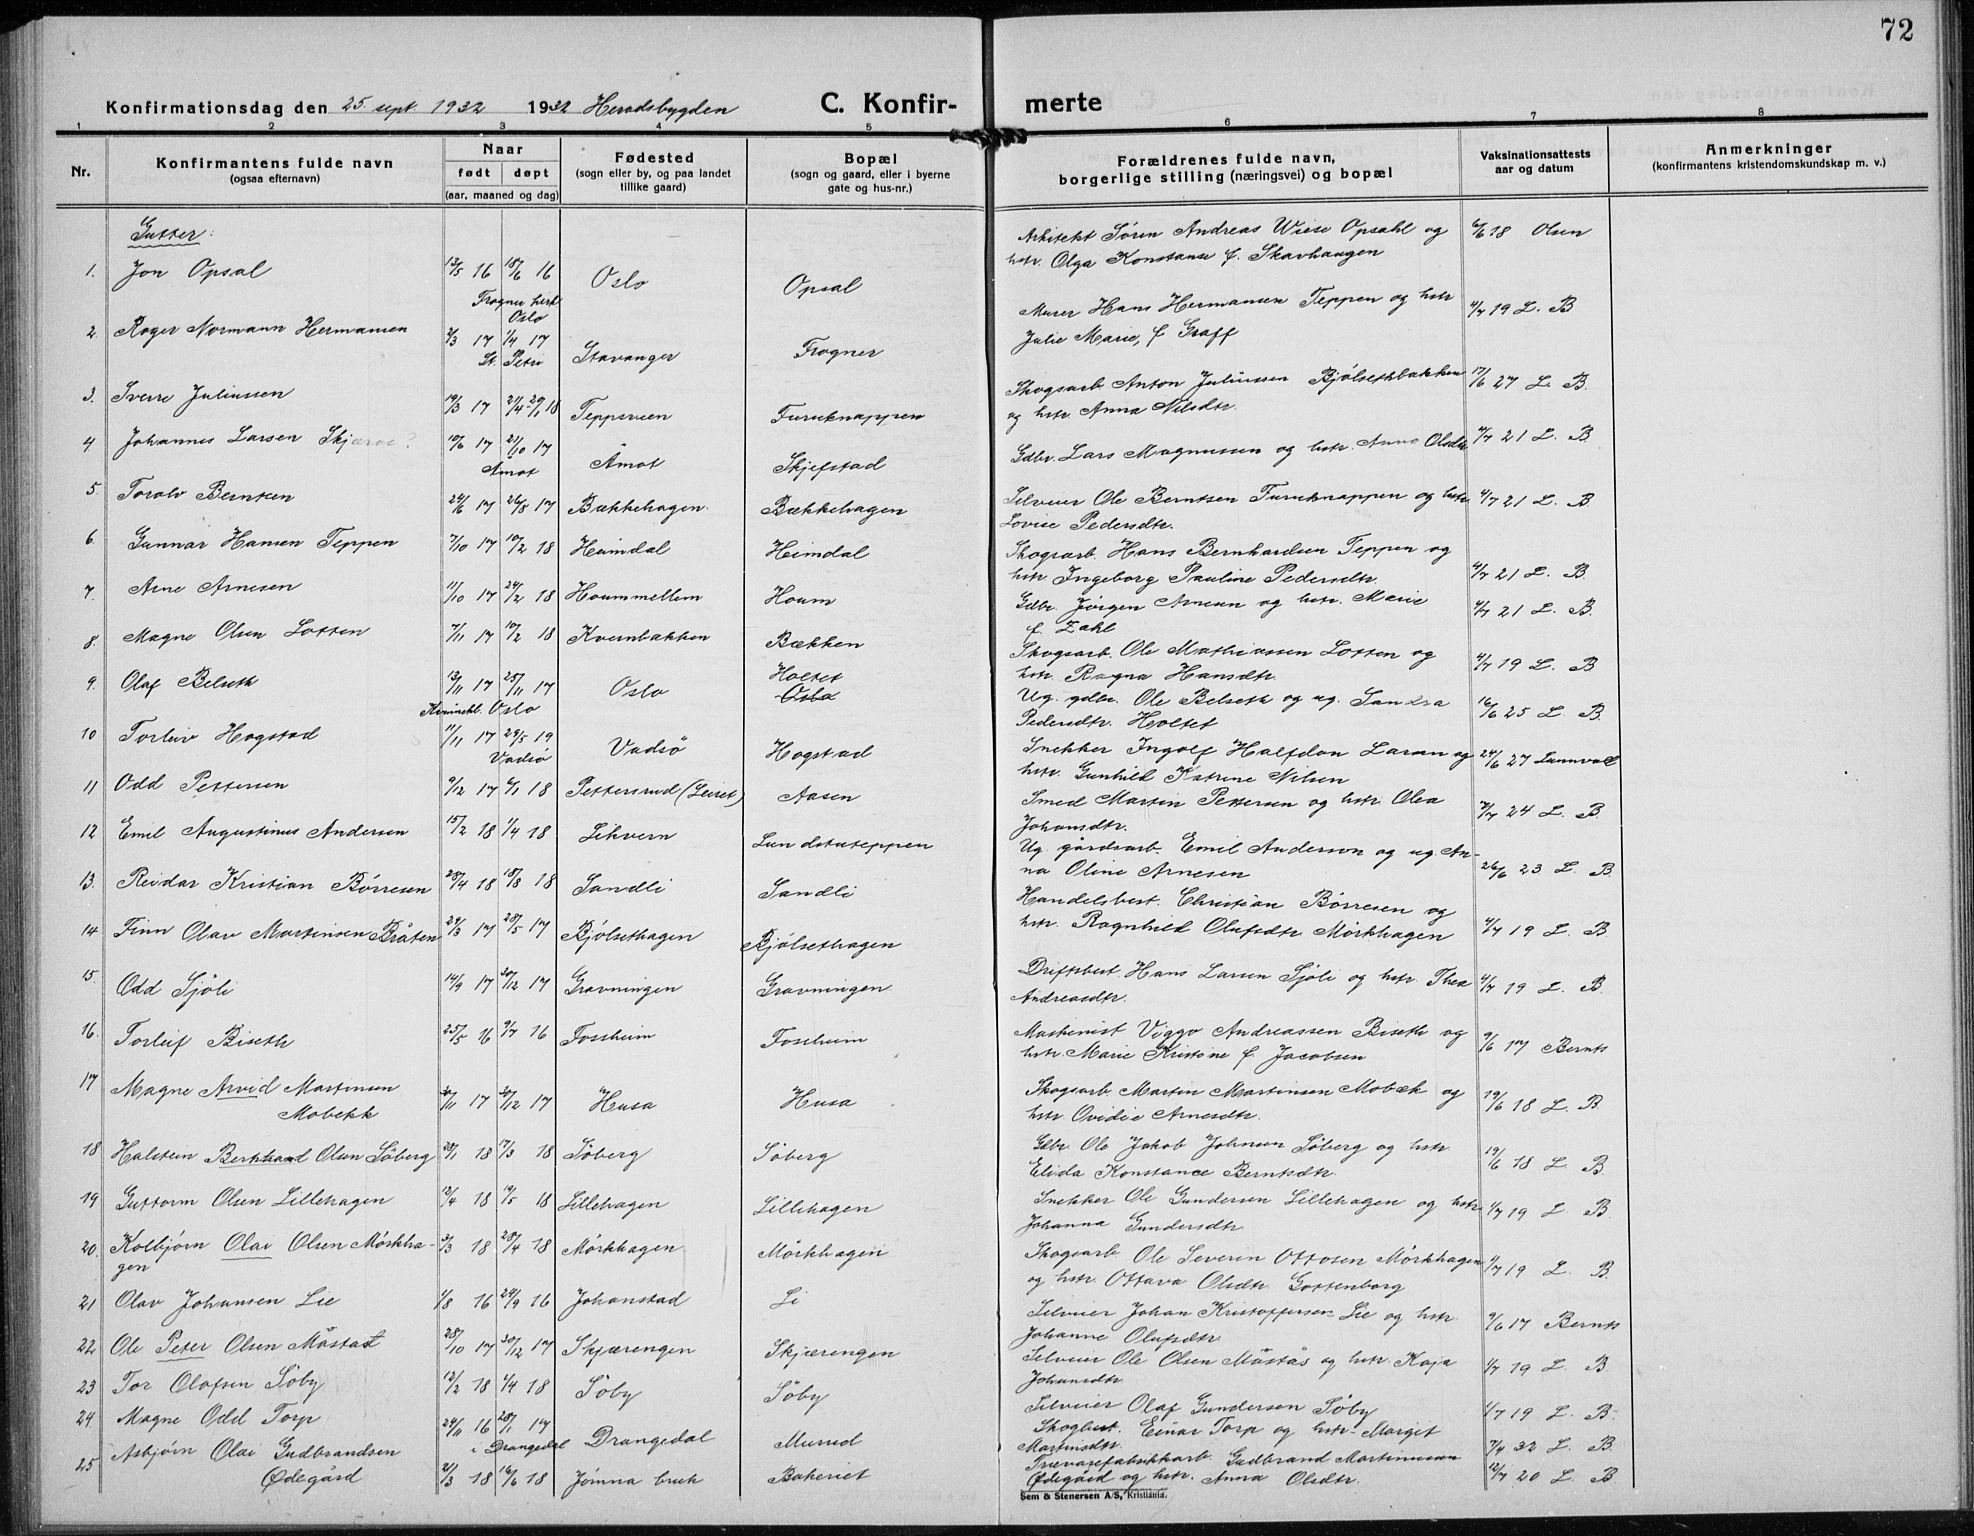 72
Konfirmationsdag den 25. sept. 1932 1932 Heradsbygden C. Konfir- merte
1 2 3 4 5 6 7 8
Nr. Konfirmantens fulde navn (ogsaa efternavn) Naar født døpt (aar, maaned og dag) Fødested (sogn eller by, og paa landet tillike gaard) Bopæl (sogn og gaard, eller i byerne gate og hus-nr.) Forældrenes fulde navn, borgerlige stilling (næringsvei) og bopæl Vaksinationsattests aar og datum Anmerkninger (konfirmantens kristendomskundskap m. v.)
Gutter:
1. Jon Opsal 13/5 16 18/6 16 Oslo Opsal Arkitekt Søren Andreas Wiese Opsahl og 6/6 18 Olsen
Frogner kirk Oslo hstr. Olga Konstanse f. Skavhaugen
2. Roger Normann Hermansen 2/3 17 1/4 17 Stavanger Frogner Murer Hans Hermansen Teppen og hstr 4/7 19 L. B
St. Petri Julie Marie, f Graff
3. Sverre Juliussen 19/3 17 Teppsveen Furuknappen Skogsarb Anton Juliussen Bjølsethbakken 17/6 27 L. B.
og hstr. Anna Nilsdtr.
4 Johannes Larsen Skjærae? 10/6 17 21/10 17 Åmot Skjefstad Gdbr. Lars Magnussen og hstr. Anna Olsdtr 4/7 21 L. B.
Åmot
5. Toralv Berntsen 24/6 17 26/8 17 Bækkehagen. Bækkehagen Selveier Ole Berntsen Furuknappen og hstr. 4/7 21 L. B.
Lovise Pedersdtr.
6. Gunnar Hansen Teppen 7/10 17 10/2 18 Heimdal Heimdal Skogsarb. Hans Bernhardsen Teppen og
hstr. Ingeborg Pauline Pedersdtr. 4/7 21 L. B.
7. Arne Arnesen 11/10 17 24/2 18 Hoummellem Houm Gdbr. Jørgen Arnesen og hstr. Marie 4/7 21 L. B.
f. Zahl
8. Magne Olsen Lotten 7/11 17 10/2 18 Kvernbakken Bækken Skogsarb. Ole Mathiassen Lotten og 4/7 19 L. B
hstr. Ragna Hansdtr.
9. Olaf Belseth 13/11 17 25/11 17 Oslo Holtet Oslo Ug. gdbr. Ole Belseth og ug. Sandra 16/6 25 L B.
Kvinnekl. Oslo Pedersdtr. Holtet
10 Torleiv Hogstad 11/11 17 29/5 19 Vadsø Hogstad Snekker Ingolf Halfdan Larsen og 24/6 27
Vadsø hstr. Gunhild Katrine Nilsen
11 Odd Pettersen 9/12 17 6/1 18 Pettersrud (Leiret) Aasen Smed Martin Pettersen og hstr. Olea 7/7 24 L. B.
Johansdtr.
12 Emil Augustinus Andersen 15/2 18 1/4 18 Likvern Lundstuteppen Ug. gårdsarb. Emil Anderson og ug. An-
na Oline Arnesen 26/6 23 L. B.
13. Reidar Kristian Børresen 28/4 18 18/8 18 Sandli Sandli Handelsbest. Christian Børresen og
hstr. Ragnhild Olufsdtr Mørkhagen 4/7 19 L. B.
14 Finn Olav Martinsen Bråten 24/3 17 28/5 17 Bjølsethagen Bjølsethagen
15. Odd Sjöli 14/9 17 30/12 17 Gravningen Gravningen Driftsbest. Hans Larsen Sjöli og hstr. Thea 4/7 19 L. B.
Andreasdtr.
16. Torleif Biseth 25/5 16 9/7 16 Fossheim Fossheim Maskinist Viggo Andreassen Biseth og 9/6 17 Bernts
hstr. Marie Kristine f. Jacobsen
17 Magne Arvid Martinsen 30/11 17 30/12 17 Husa Husa Skogsarb. Martin Martinsen Mobæk og 19/6 18 L. B
Mobekk hstr. Ovidie Arnesdtr.
18 Halstein Bernhard Olsen Søberg 28/1 18 17/3 18 Søberg Søberg Gdbr. Ole Jakob Johnsen Søberg og hstr. 19/6 18 L B.
Elida Konstance Berntsdtr.
19 Guttorm Olsen Lillehagen 12/4 18 19/5 18 Lillehagen Lillehagen Snekker Ole Gundersen Lillehagen og hstr 1/7 19 L B.
Johanna Gundersdtr.
20. Kolbjørn Olai Olsen Mørkha- 3/3 18 28/4 18 Mørkhagen Mørkhagen Skogsarb Ole Severin Ottosen Mörkhagen 1/7 19 L. B.
gen og hstr. Ottava Olsdtr. Gottenborg
21 Olav Johansen Lie 1/8 16 24/9 16 Johanstad Li Selveier Johan Kristoffersen Lie og hstr. 9/6 17 Bernts
Johanne Olufsdtr.
22. Ole Peter Olsen Måstad 28/10 17 30/12 17 Skjærengen Skjærengen Selveier Ole Olsen Måstås og hstr. Kaja 1/7 19 L. B
Johansdtr.
23 Tor Olafsen Söby 12/2 18 1/4 18 Söby Söby Selveier Olaf Gundersen Söby 1/7 19 L. B.
24. Magne Odd Torp 24/11 16 28/1 17 Drangedal Murud Skogbest. Einar Torp og hstr. Margit
i Drangedal Martinsdtr. 7/4 32 L. B.
25 Asbjørn Olai Gudbrandsen 21/3 18 16/6 18 Jömna bruk Bakeriet Trævarefabrikkarb Gudbrand Martinussen 12/7 20 L. B
Ødegård Ødegård og hstr. Anna Olsdtr.
Sem & Stenersen A/S, Kristiania.